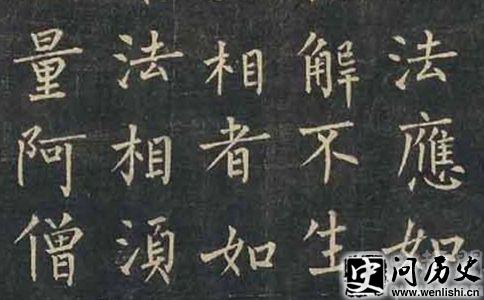 法應如
解不生
相者如
法相須
量阿僧
史问历史
www.wenlishi.cn